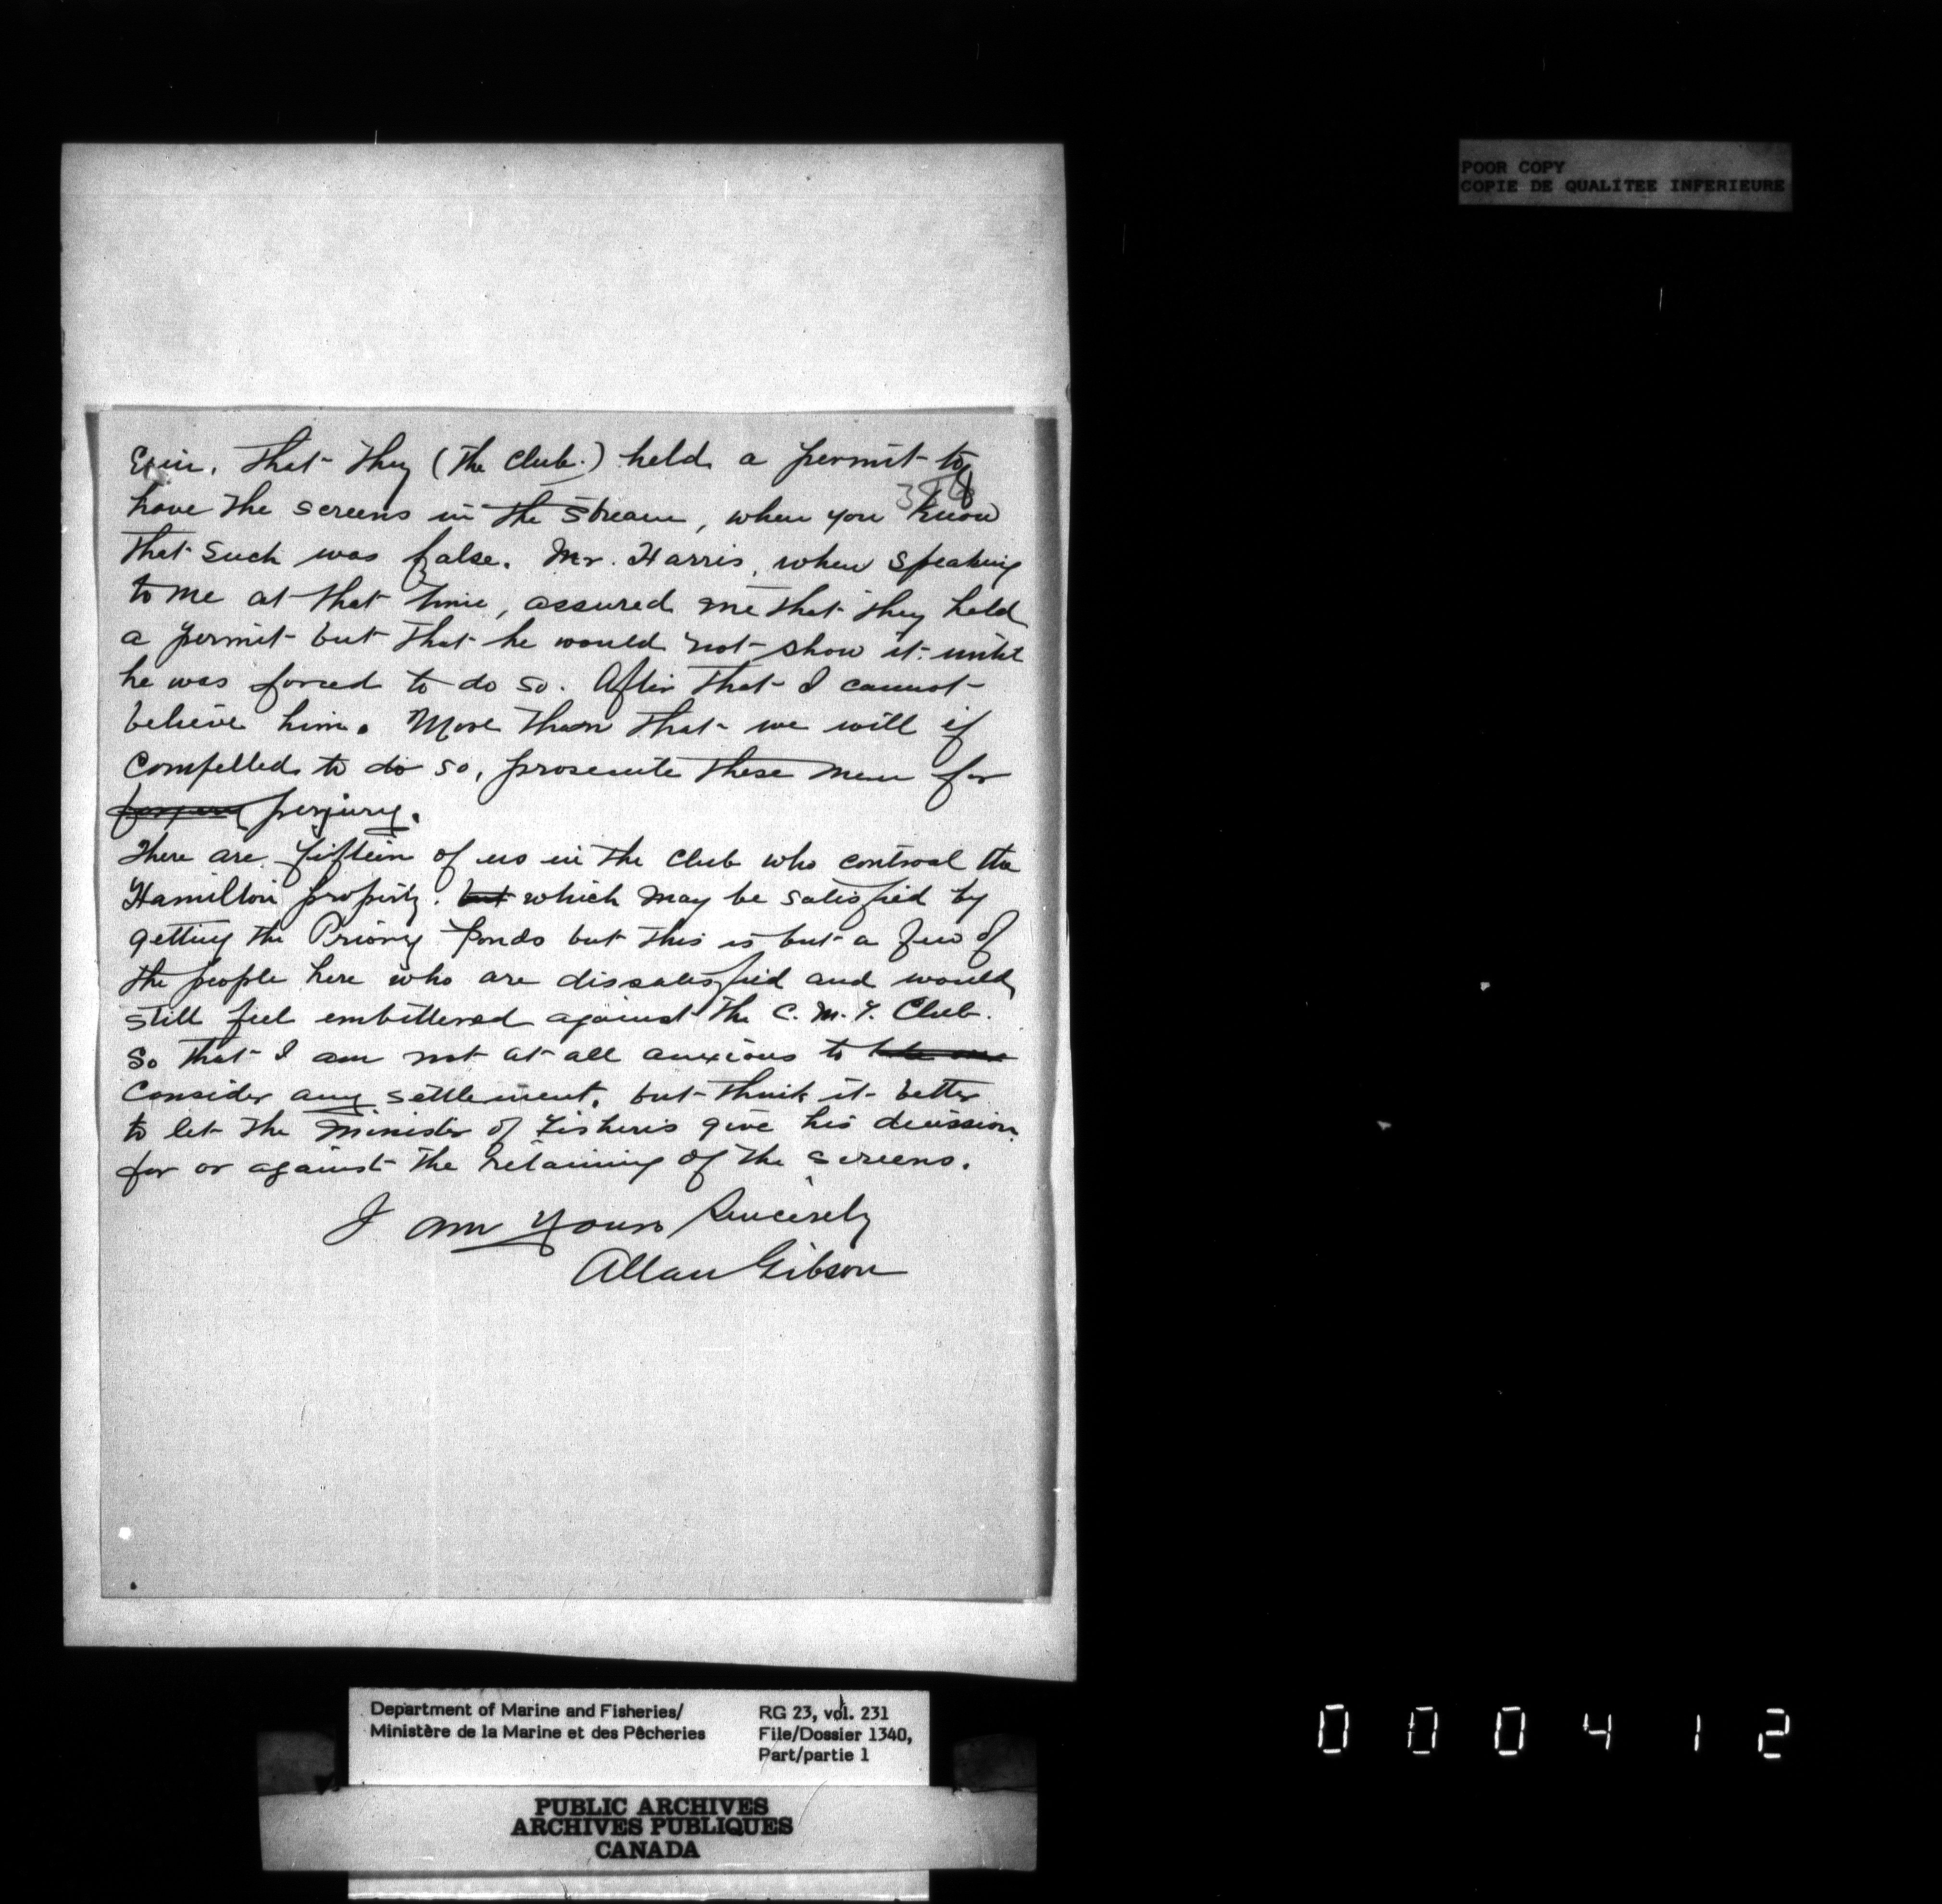 POOR COPY
COPIE DE QUALITEE INFERIEURE
Erin, that they (the Club.) held a permit to
have the screens in the stream, when you know
that such was false. Mr. Harris, when speaking
to me at that time, assured me that they held
a permit but that he would not show it until
he was forced to do so. After that I cannot
believe him. More than that we will if
compelled to do so, prosecute these men for
perjury.
There are fifteen of us in the club who controal the
Hamilton property. but which may be satisfied by
getting the Priory Ponds but this is but a few of
the people here who are dissatisfied and would
still feel embittered against the C. M. T. Club.
So that I am not at all anxious to
consider any settlement. but think it better
to let the Minister of Fisheries give his decission
for or against the retaining of the screens.
I am yours Sincerely
Allan Gibson
Department of Marine and Fisheries/
Ministère de la Marine et des Pêcheries
RG 23, vol. 231
File/Dossier 1340,
Part/partie 1
PUBLIC ARCHIVES
ARCHIVES PUBLIQUES
CANADA
000412